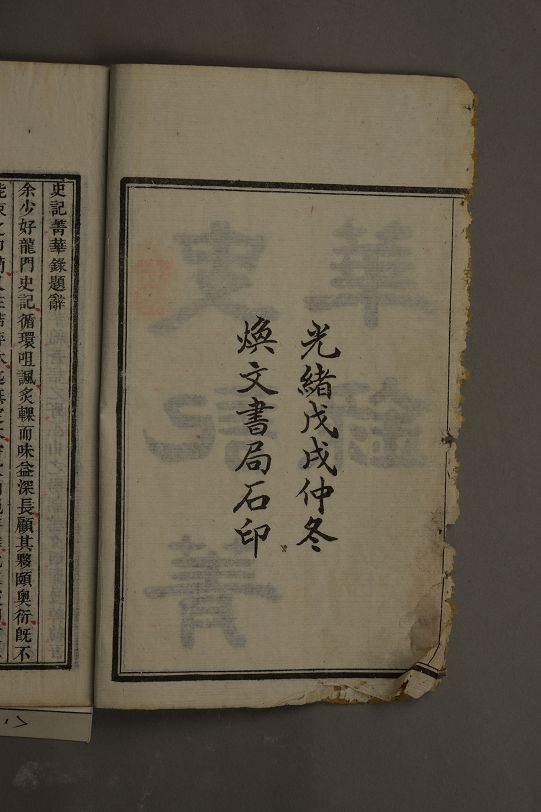 光緒戊戌仲冬
煥文書局石印
史記菁華錄題辭
余少好龍門史記循環咀諷炙輠而味益深長顧其夥頤奧衍既不